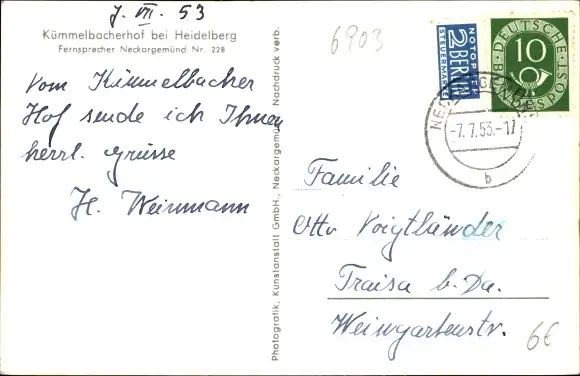 7. VII. 53
Kümmelbacherhof bei Heidelberg
Fernsprecher Neckargemünd Nr. 228
Vom Kümmelbacher
Hof sende ich Ihnen
herrl. Grüsse
H. Weinmann
Photografik, Kunstanstalt GmbH., Neckargemünd, Nachdruck verb.
6903
NOTOPFER
2 BERLIN
STEUERMARKE
DEUTSCHE
BUNDESPOST
10
-7.7.53.-17
b
Familie
Otto Voigtländer
Traisa b. Da.
Weingartenstr.
6€